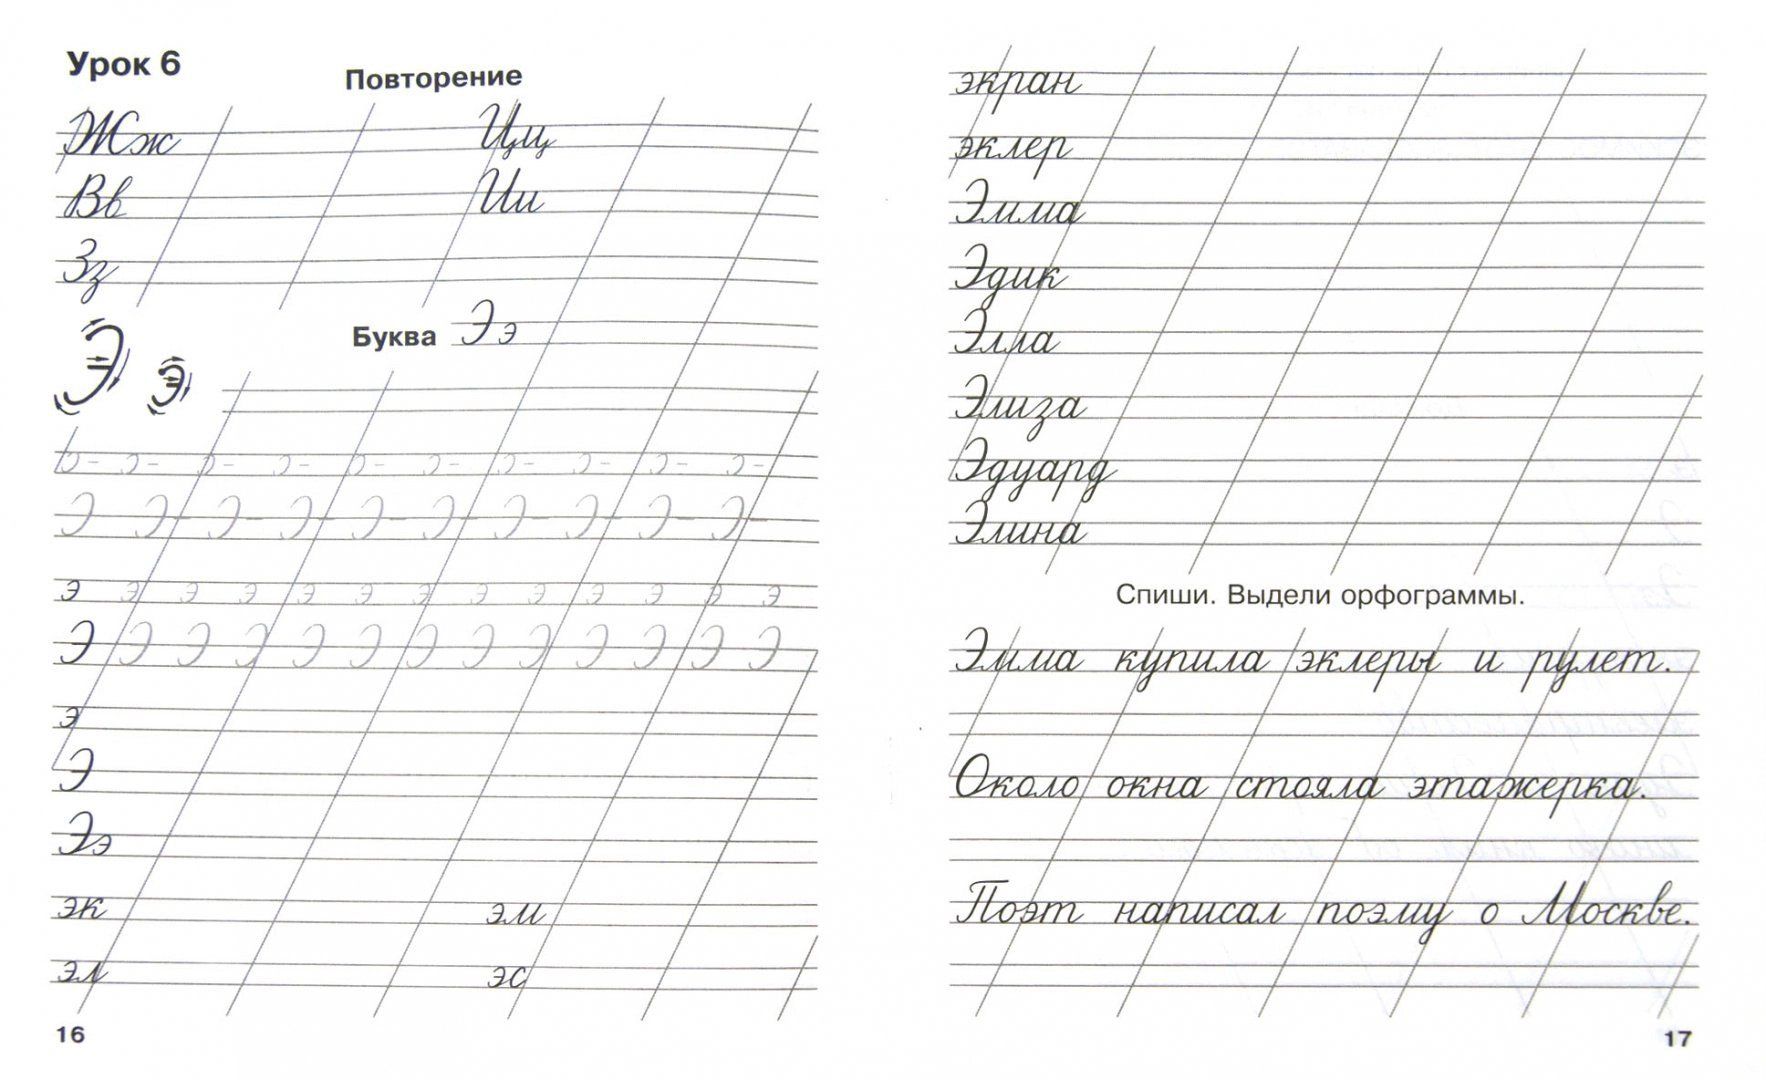 Урок 6
Повторение
Жж Цц
Вв Ии
Зз
Буква Ээ
э э э э э э э э э э э э э
Э Э Э Э Э Э Э Э Э Э Э Э Э
э
Э
Ээ
эк эм
эл эс
16
экран
эклер
Эмма
Эдик
Элла
Элиза
Эдуард
Элина
Спиши. Выдели орфограммы.
Эмма купила эклеры и рулет.
Около окна стояла этажерка.
Поэт написал поэму о Москве.
17